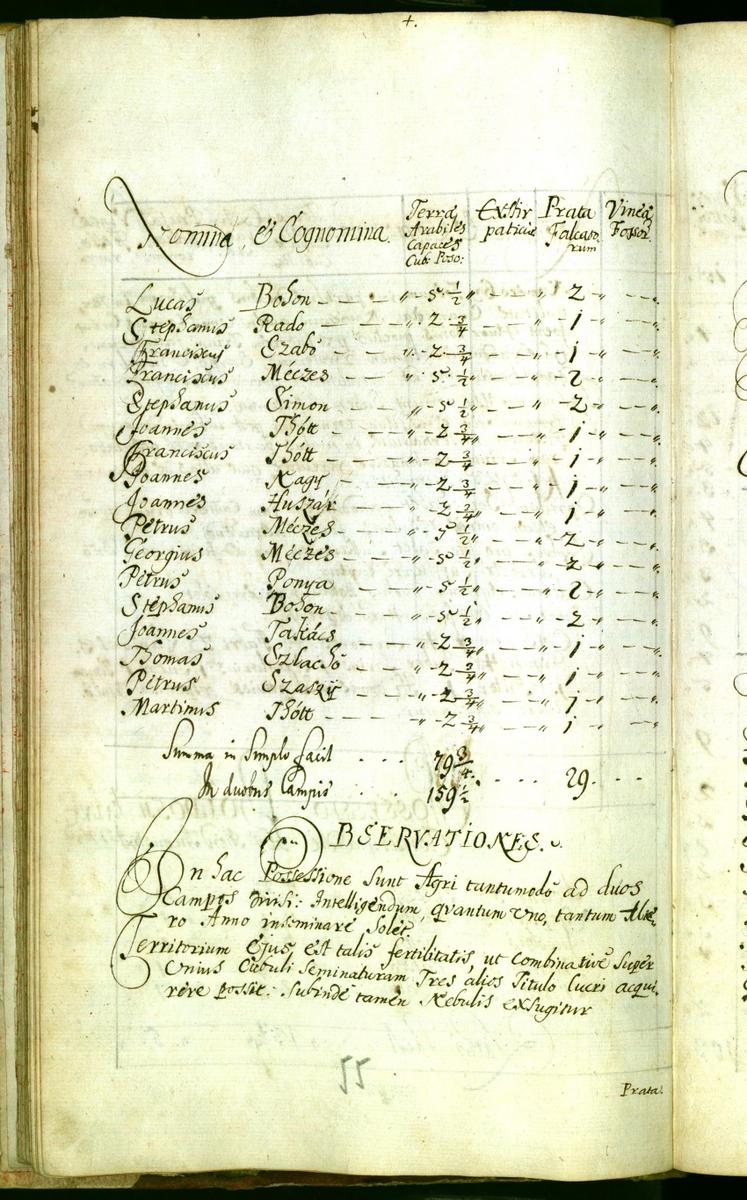 +.
Nomina, & Cognomina. Terra Arabiles Capaces Cub: Poso: Exstirpaticiæ Prata Falcatorum Vinea Fossor.
Lucas Bohon — — — „ 5 1/2 „ — — „ 2 „ — — „
Stephanus Rado — — — „ 2 3/4 — — „ 1 — — „
Franciscus Szabó — — „ 2 3/4 — — „ 1 — — „
Franciscus Méczes — — „ 5 1/2 „ — — „ 2 — — „
Stephanus Simon — — — „ 5 1/2 „ — — „ 2 „ — — „
Joannes Thótt — — — „ 2 3/4 „ — — „ 1 — — „
Franciscus Thótt — — — „ 2 3/4 — — „ 1 — — „
Joannes Nagy — — — „ 2 3/4 — — „ 1 — — „
Joannes Huszár — — — „ 2 3/4 „ — — „ 1 — — „
Petrus Méczes — — — „ 5 1/2 — — „ 2 — — „
Georgius Méczes — — — „ 5 1/2 „ — — „ 2 — — „
Petrus Ponya — — — „ 5 1/2 „ — — „ 2 — — „
Stephanus Bohon — — — „ 5 1/2 „ — — „ 2 — — „
Joannes Takács — — — „ 2 3/4 — — „ 1 — — „
Thomas Szlachó — — — „ 2 3/4 — — „ 1 — — „
Petrus Szaszy — — — „ 2 3/4 „ — — „ 1 — — „
Martinus Thótt — — — „ 2 3/4 „ — — „ 1 — — „
Summa in Simplo facit . . . 79 3/4.
In duobus Campis . . 159 1/2 . . . . 29. . . .
OBSERVATIONES.
In hac Possessione sunt Agri tantumodo ad duos
Campos divisi: Intelligendum, qvantum Uno, tantum Alte-
ro Anno inseminare solet.
Territorium Ejus est talis fertilitatis, ut combinative super
Unius Cubuli seminaturam Tres alios Titulo lucri acqui-
rere possit: subinde tamen Nebulis exsugitur
Prata